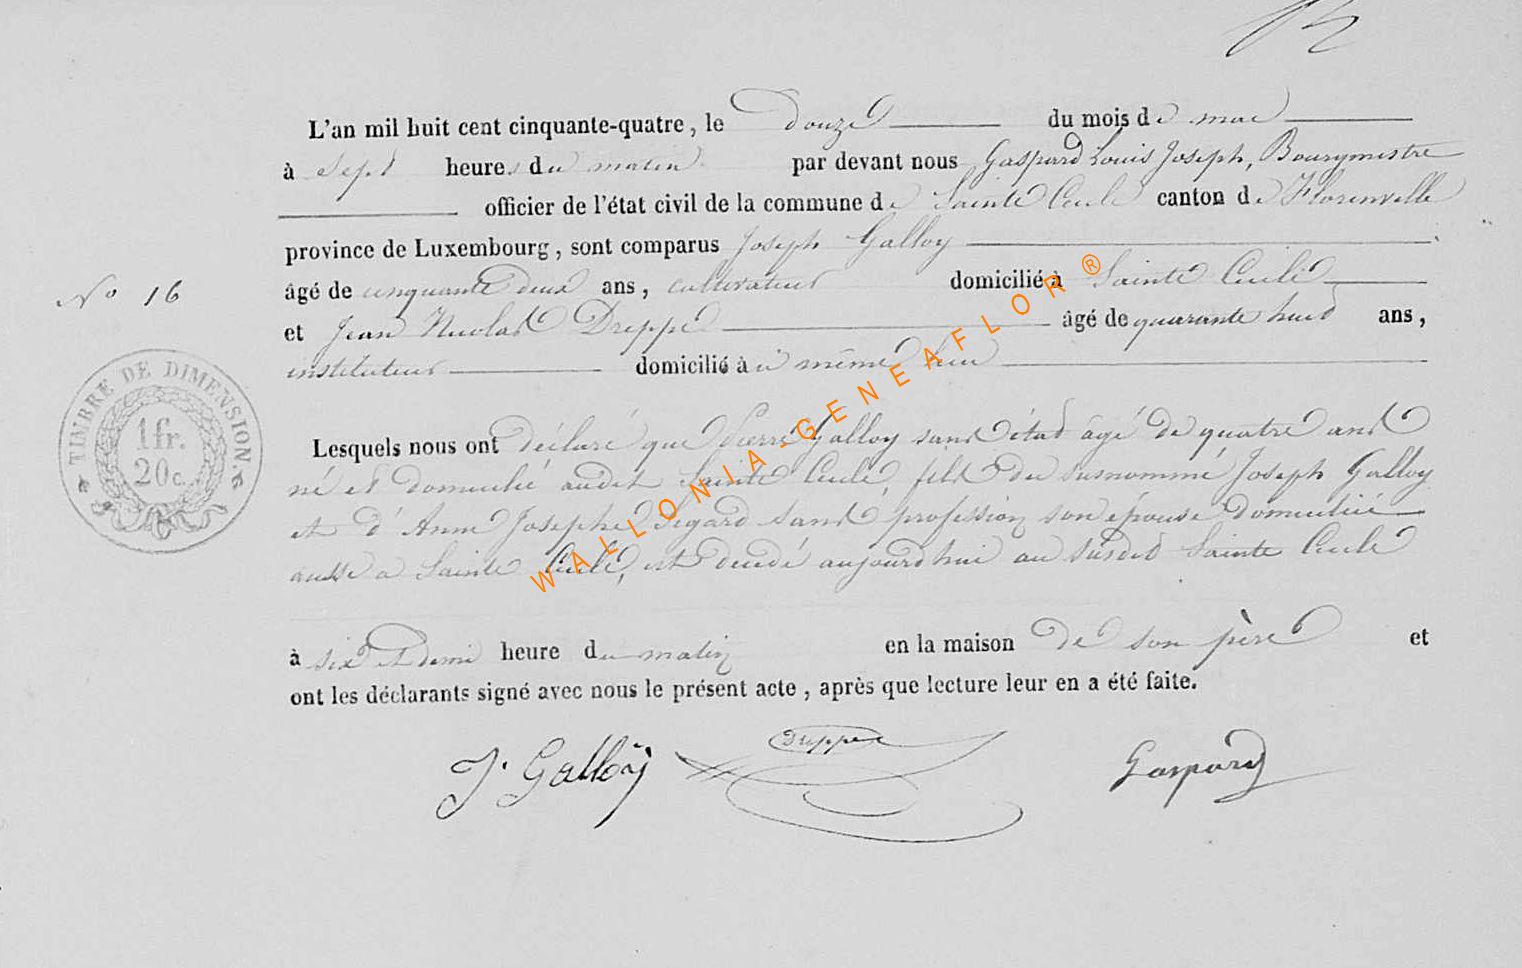 L'an mil huit cent cinquante-quatre, le douze du mois de mai
à sept heures du matin par devant nous Gaspard Louis Joseph, Bourgmestre
officier de l'état civil de la commune de Sainte Cécile canton de Florenville
province de Luxembourg, sont comparus Joseph Galloy
No 16
âgé de cinquante deux ans, cultivateur domicilié à Sainte Cécile
et Jean Nicolas Dreppe âgé de quarante huit ans,
instituteur domicilié à même lieu
TIMBRE DE DIMENSION.
1 fr.
20 c.
Lesquels nous ont déclaré que Pierre Galloy sans état âgé de quatre ans
né et domicilié audit Sainte Cécile, fils du susnommé Joseph Galloy
et d'Anne Josephe Sigard sans profession son épouse domiciliée
aussi a Sainte Cécile, est decedé aujourd'hui au susdit Sainte Cécile
à six et demi heure du matin en la maison de son père et
ont les déclarants signé avec nous le présent acte, après que lecture leur en a été faite.
J. Galloy Dreppe Gaspard
WALLONIA-GENEAFLOR ®